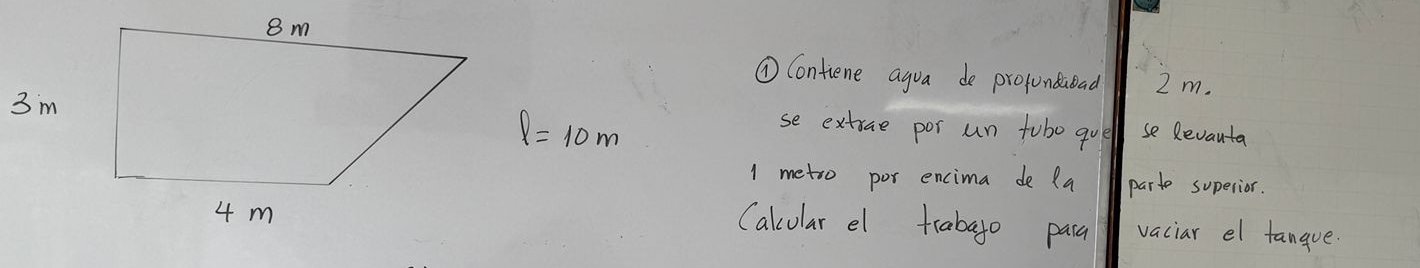 8 m
3 m
4 m
l = 10 m
① Contiene agua de profundidad 2 m.
se extrae por un tubo que se levanta
1 metro por encima de la parte superior.
Calcular el trabajo para vaciar el tanque.